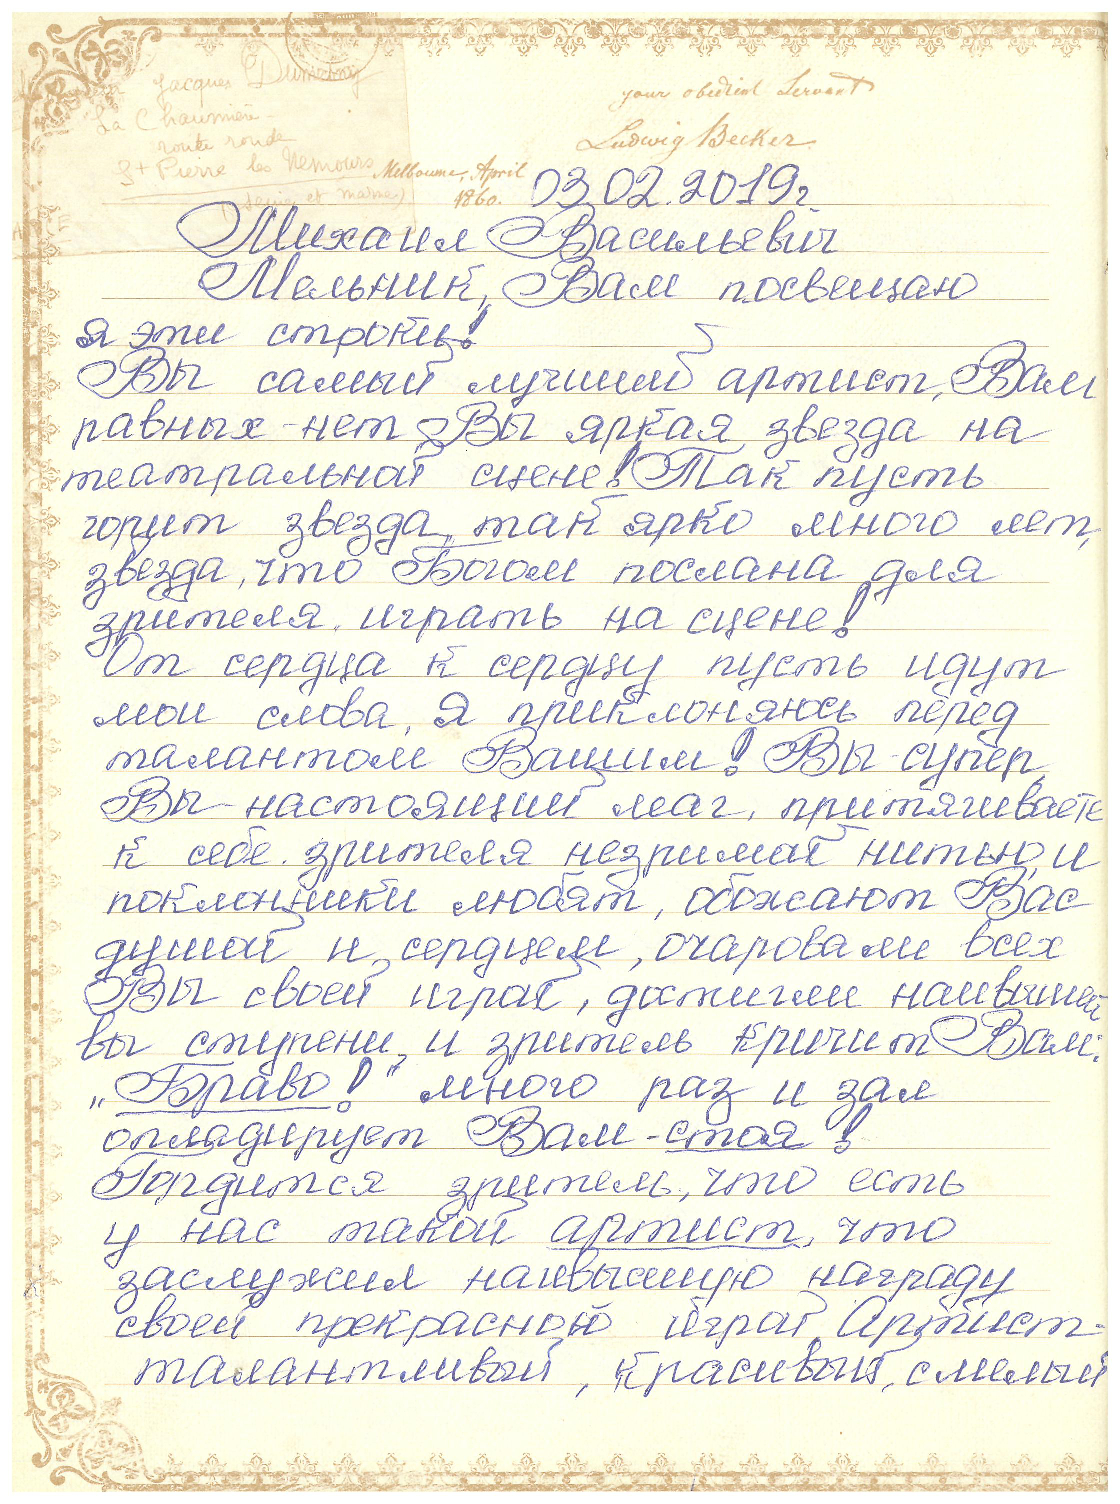 Jacques Dumesny
La Chaumière
route ronde
St Pierre les Nemours
(Seine et Marne)
your obedient Servant
Ludwig Becker.
Melbourne, April
1860.
03.02.2019г.
Михаил Васильевич
Мельник, Вам посвещаю
я эти строки!
Вы самый лучший артист, Вам
равных - нет, Вы яркая звезда на
театральной сцене! Так пусть
горит звезда, так ярко много лет,
звезда, что Богом послана для
зрителя играть на сцене!
От сердца к сердцу пусть идут
мои слова, я приклоняюсь перед
талантом Вашим! Вы - супер,
Вы - настоящий маг, притягиваете
к себе зрителя незримой нитью, и
поклонники любят, обожают Вас
душой и сердцем, очаровали всех
Вы своей игрой, достигли наивышей
вы ступени, и зритель кричит Вам:
„Браво!" много раз и зал
опладирует Вам - стоя!
Гордится зритель, что есть
у нас такой артист, что
заслужил наивысшую награду
своей прекрасной игрой. Артист -
талантливый, красивый, смелый